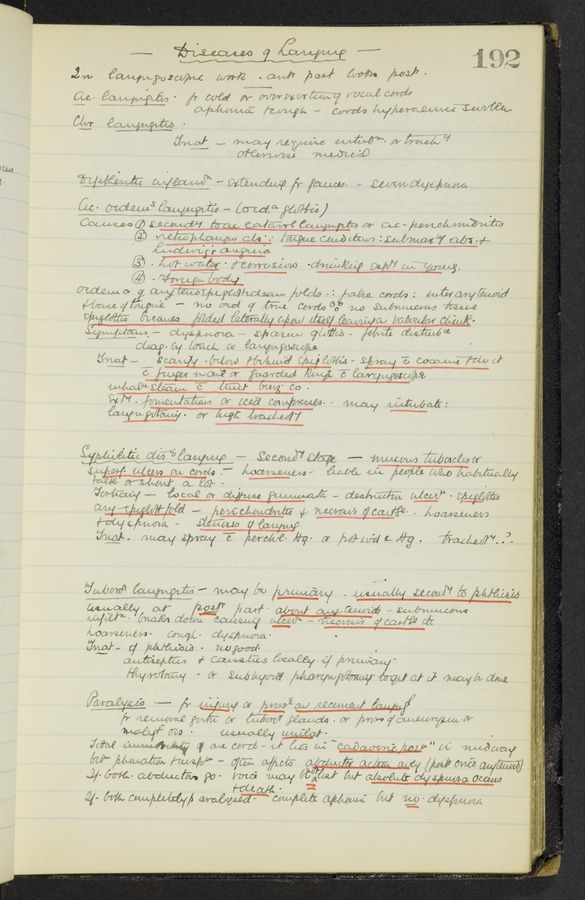 — Diseases of Larynx —
192
In laryngoscopic work . ant part looks post.
Ac. laryngitis . fr cold or overexerting vocal cords
aphonia & cough – cords hyperaemic swollen
Chr laryngitis .
Treat – may require intubn. or trachy
otherwise medical
Diphtheritic – extending fr fauces . – severe dyspnoea
Ac. oedems laryngitis – (oeda glottis)
Causes ① secondy to ac catarrl laryngitis or ac. perichondritis
② retrophargl abs : tongue conditions : submaxy abs . +
Ludwigs angina
③ . hot water . & corrosives drinking esply in young.
④ . Foreign body
oedema of arytenoepiglottidean folds .: false cords : interarytenoid
& base of tongue – no oed of true cords as no submucous tissue
epiglottis becomes folded laterally upon itself leaving a valvular chink.
Symptoms – dyspnoea – spasm glottis. febrile disturbce
diag. by touch or laryngoscope
Treat – scarify . below & behind epiglottis – spray c cocaine & do it
c finger nail or guarded knife c laryngoscope
inhaln steam c tinct benz co .
Extl . fomentations or iced compresses . may intubate :
laryngotomy . or high tracheoty
Syphilitic diss of larynx – Secondy stage – mucous tubercles or
superfl ulcers on cords – hoarseness – liable in people who habitually
talk or shout a lot .
Tertiary – local or diffuse gummata – destructive ulcern . epiglottis
ary-epiglott fold – perichondritis & necrosis of cartlge . hoarseness
& dyspnoea – stenosis of larynx.
Treat. may spray c perchl. Hg. or pot iod & Hg. tracheoty . ?.
Tuberr laryngitis – may be primary . usually secondy to phthisis
usually at post part . about arytenoids – submucous
infiltn . breaks down causing ulcern – necrosis of cartlge etc
hoarseness . cough . dyspnoea .
Treat – if phthisis . no good .
antiseptics & caustics locally if primary .
thyrotomy – or subhyoid pharyngotomy to get at it may be done
Paralysis – fr injury or presse on recurrent laryngl
fr removing goitre or tubercr glands . or press of aneurysm or
maligt oes . usually unilat .
Total immobility of one cord – it lies in "cadaveric posn" ie midway
betn phonation & inspn – often affects abductor action only (post crico arytenoid)
If both abductors go . voice may be lost but absolute dyspnoea occurs
& death .
If both completely paralysed . complete aphonia but no . dyspnoea